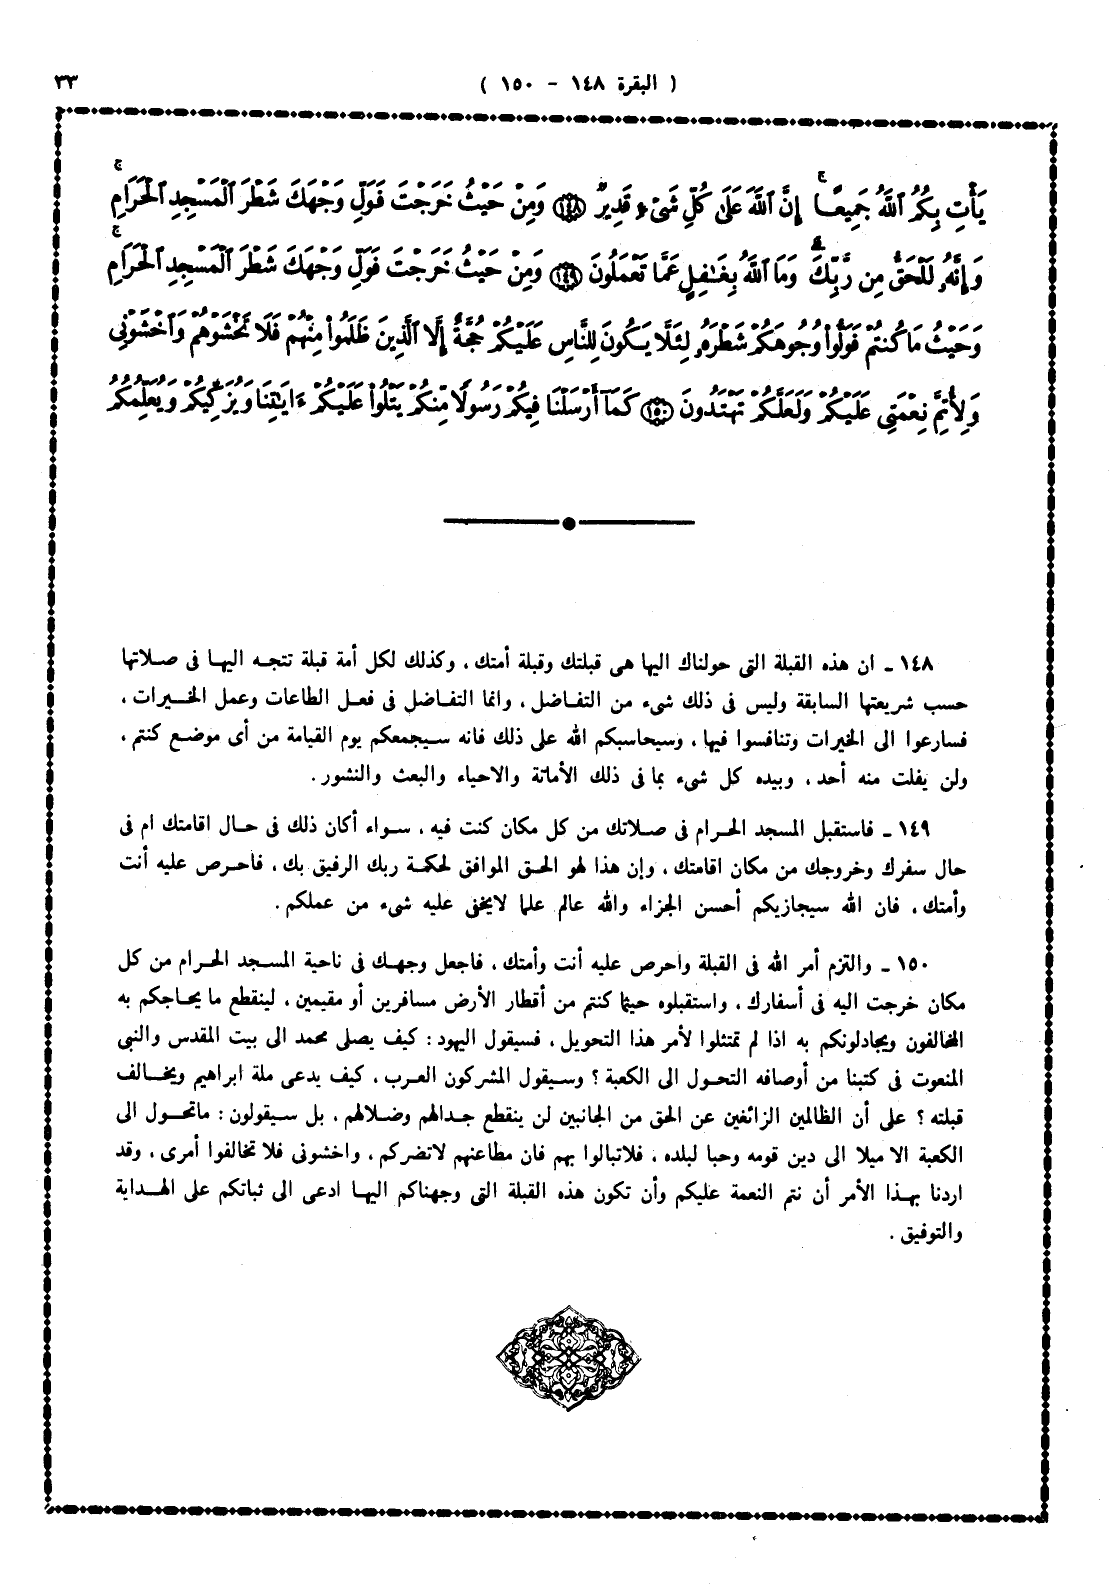 ٣٣
( البقرة ١٤٨ - ١٥٠ )
يَأْتِ بِكُمُ ٱللَّهُ جَمِيعًا ۚ إِنَّ ٱللَّهَ عَلَىٰ كُلِّ شَىْءٍ قَدِيرٌ ﴿١٤٨﴾ وَمِنْ حَيْثُ خَرَجْتَ فَوَلِّ وَجْهَكَ شَطْرَ ٱلْمَسْجِدِ ٱلْحَرَامِ ۚ
وَإِنَّهُۥ لَلْحَقُّ مِن رَّبِّكَ ۗ وَمَا ٱللَّهُ بِغَـٰفِلٍ عَمَّا تَعْمَلُونَ ﴿١٤٩﴾ وَمِنْ حَيْثُ خَرَجْتَ فَوَلِّ وَجْهَكَ شَطْرَ ٱلْمَسْجِدِ ٱلْحَرَامِ ۚ
وَحَيْثُ مَا كُنتُمْ فَوَلُّوا۟ وُجُوهَكُمْ شَطْرَهُۥ لِئَلَّا يَكُونَ لِلنَّاسِ عَلَيْكُمْ حُجَّةٌ إِلَّا ٱلَّذِينَ ظَلَمُوا۟ مِنْهُمْ فَلَا تَخْشَوْهُمْ وَٱخْشَوْنِى
وَلِأُتِمَّ نِعْمَتِى عَلَيْكُمْ وَلَعَلَّكُمْ تَهْتَدُونَ ﴿١٥٠﴾ كَمَآ أَرْسَلْنَا فِيكُمْ رَسُولًا مِّنكُمْ يَتْلُوا۟ عَلَيْكُمْ ءَايَـٰتِنَا وَيُزَكِّيكُمْ وَيُعَلِّمُكُمُ
١٤٨ ـ ان هذه القبلة التى حولناك اليها هى قبلتك وقبلة أمتك ، وكذلك لكل أمة قبلة تتجه اليها فى صلاتها
حسب شريعتها السابقة وليس فى ذلك شىء من التفاضل ، وانما التفاضل فى فعل الطاعات وعمل الخيرات ،
فسارعوا الى الخيرات وتنافسوا فيها ، وسيحاسبكم الله على ذلك فانه سيجمعكم يوم القيامة من أى موضع كنتم ،
ولن يفلت منه أحد ، وبيده كل شىء بما فى ذلك الأماتة والاحياء والبعث والنشور .
١٤٩ ـ فاستقبل المسجد الحرام فى صلاتك من كل مكان كنت فيه ، سواء أكان ذلك فى حال اقامتك ام فى
حال سفرك وخروجك من مكان اقامتك ، وإن هذا لهو الحق الموافق لحكمة ربك الرفيق بك ، فاحرص عليه أنت
وأمتك ، فان الله سيجازيكم أحسن الجزاء والله عالم علما لايخفى عليه شىء من عملكم .
١٥٠ ـ والتزم أمر الله فى القبلة واحرص عليه أنت وأمتك ، فاجعل وجهك فى ناحية المسجد الحرام من كل
مكان خرجت اليه فى أسفارك ، واستقبلوه حيثما كنتم من أقطار الأرض مسافرين أو مقيمين ، لينقطع ما يحاجكم به
المخالفون ويجادلونكم به اذا لم تمتثلوا لأمر هذا التحويل ، فسيقول اليهود : كيف يصلى محمد الى بيت المقدس والنبى
المنعوت فى كتبنا من أوصافه التحول الى الكعبة ؟ وسيقول المشركون العرب ، كيف يدعى ملة ابراهيم ويخالف
قبلته ؟ على أن الظالمين الزائغين عن الحق من الجانبين لن ينقطع جدالهم وضلالهم ، بل سيقولون : ماتحول الى
الكعبة الا ميلا الى دين قومه وحبا لبلده ، فلاتبالوا بهم فان مطاعنهم لاتضركم ، واخشونى فلا تخالفوا أمرى ، وقد
اردنا بهذا الأمر أن نتم النعمة عليكم وأن تكون هذه القبلة التى وجهناكم اليها ادعى الى ثباتكم على الهداية
والتوفيق .